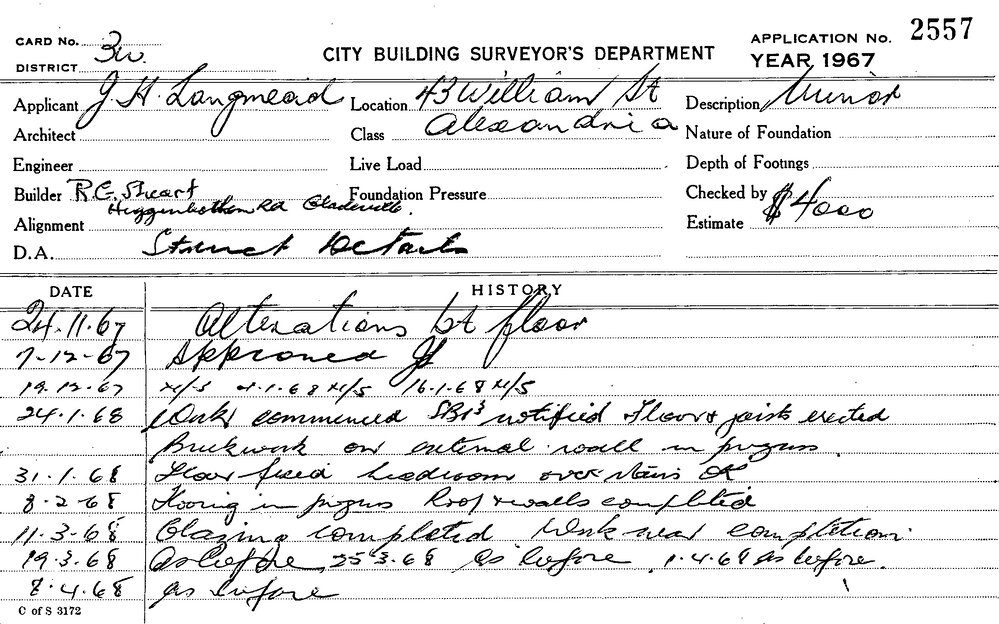 CARD No. 3w.
DISTRICT
CITY BUILDING SURVEYOR'S DEPARTMENT
APPLICATION No. 2557
YEAR 1967
Applicant J. H. Langmead Location 43 William St Description Minor
Architect Class Alexandria Nature of Foundation
Engineer Live Load Depth of Footings
Builder R.C. Foundation Pressure Checked by
Rd Gladesville.
Alignment Estimate $4000
D.A. Struct Details
DATE HISTORY
24.11.67 Alterations 1st floor
7-12-67 Approved
19.12.67 N/S 4.1.68 N/S 16.1.68 N/S
24.1.68 Work commenced notified Floor joists erected
Brickwork on external wall in progress.
31.1.68 Floor fixed headroom over stairs OK
8-2-68 in progress Roof & walls completed
11.3.68 Glazing completed Work near completion.
19.3.68 As before 25.3.68 As before, 1.4.68 As before.
8.4.68 As before
C of S 3172